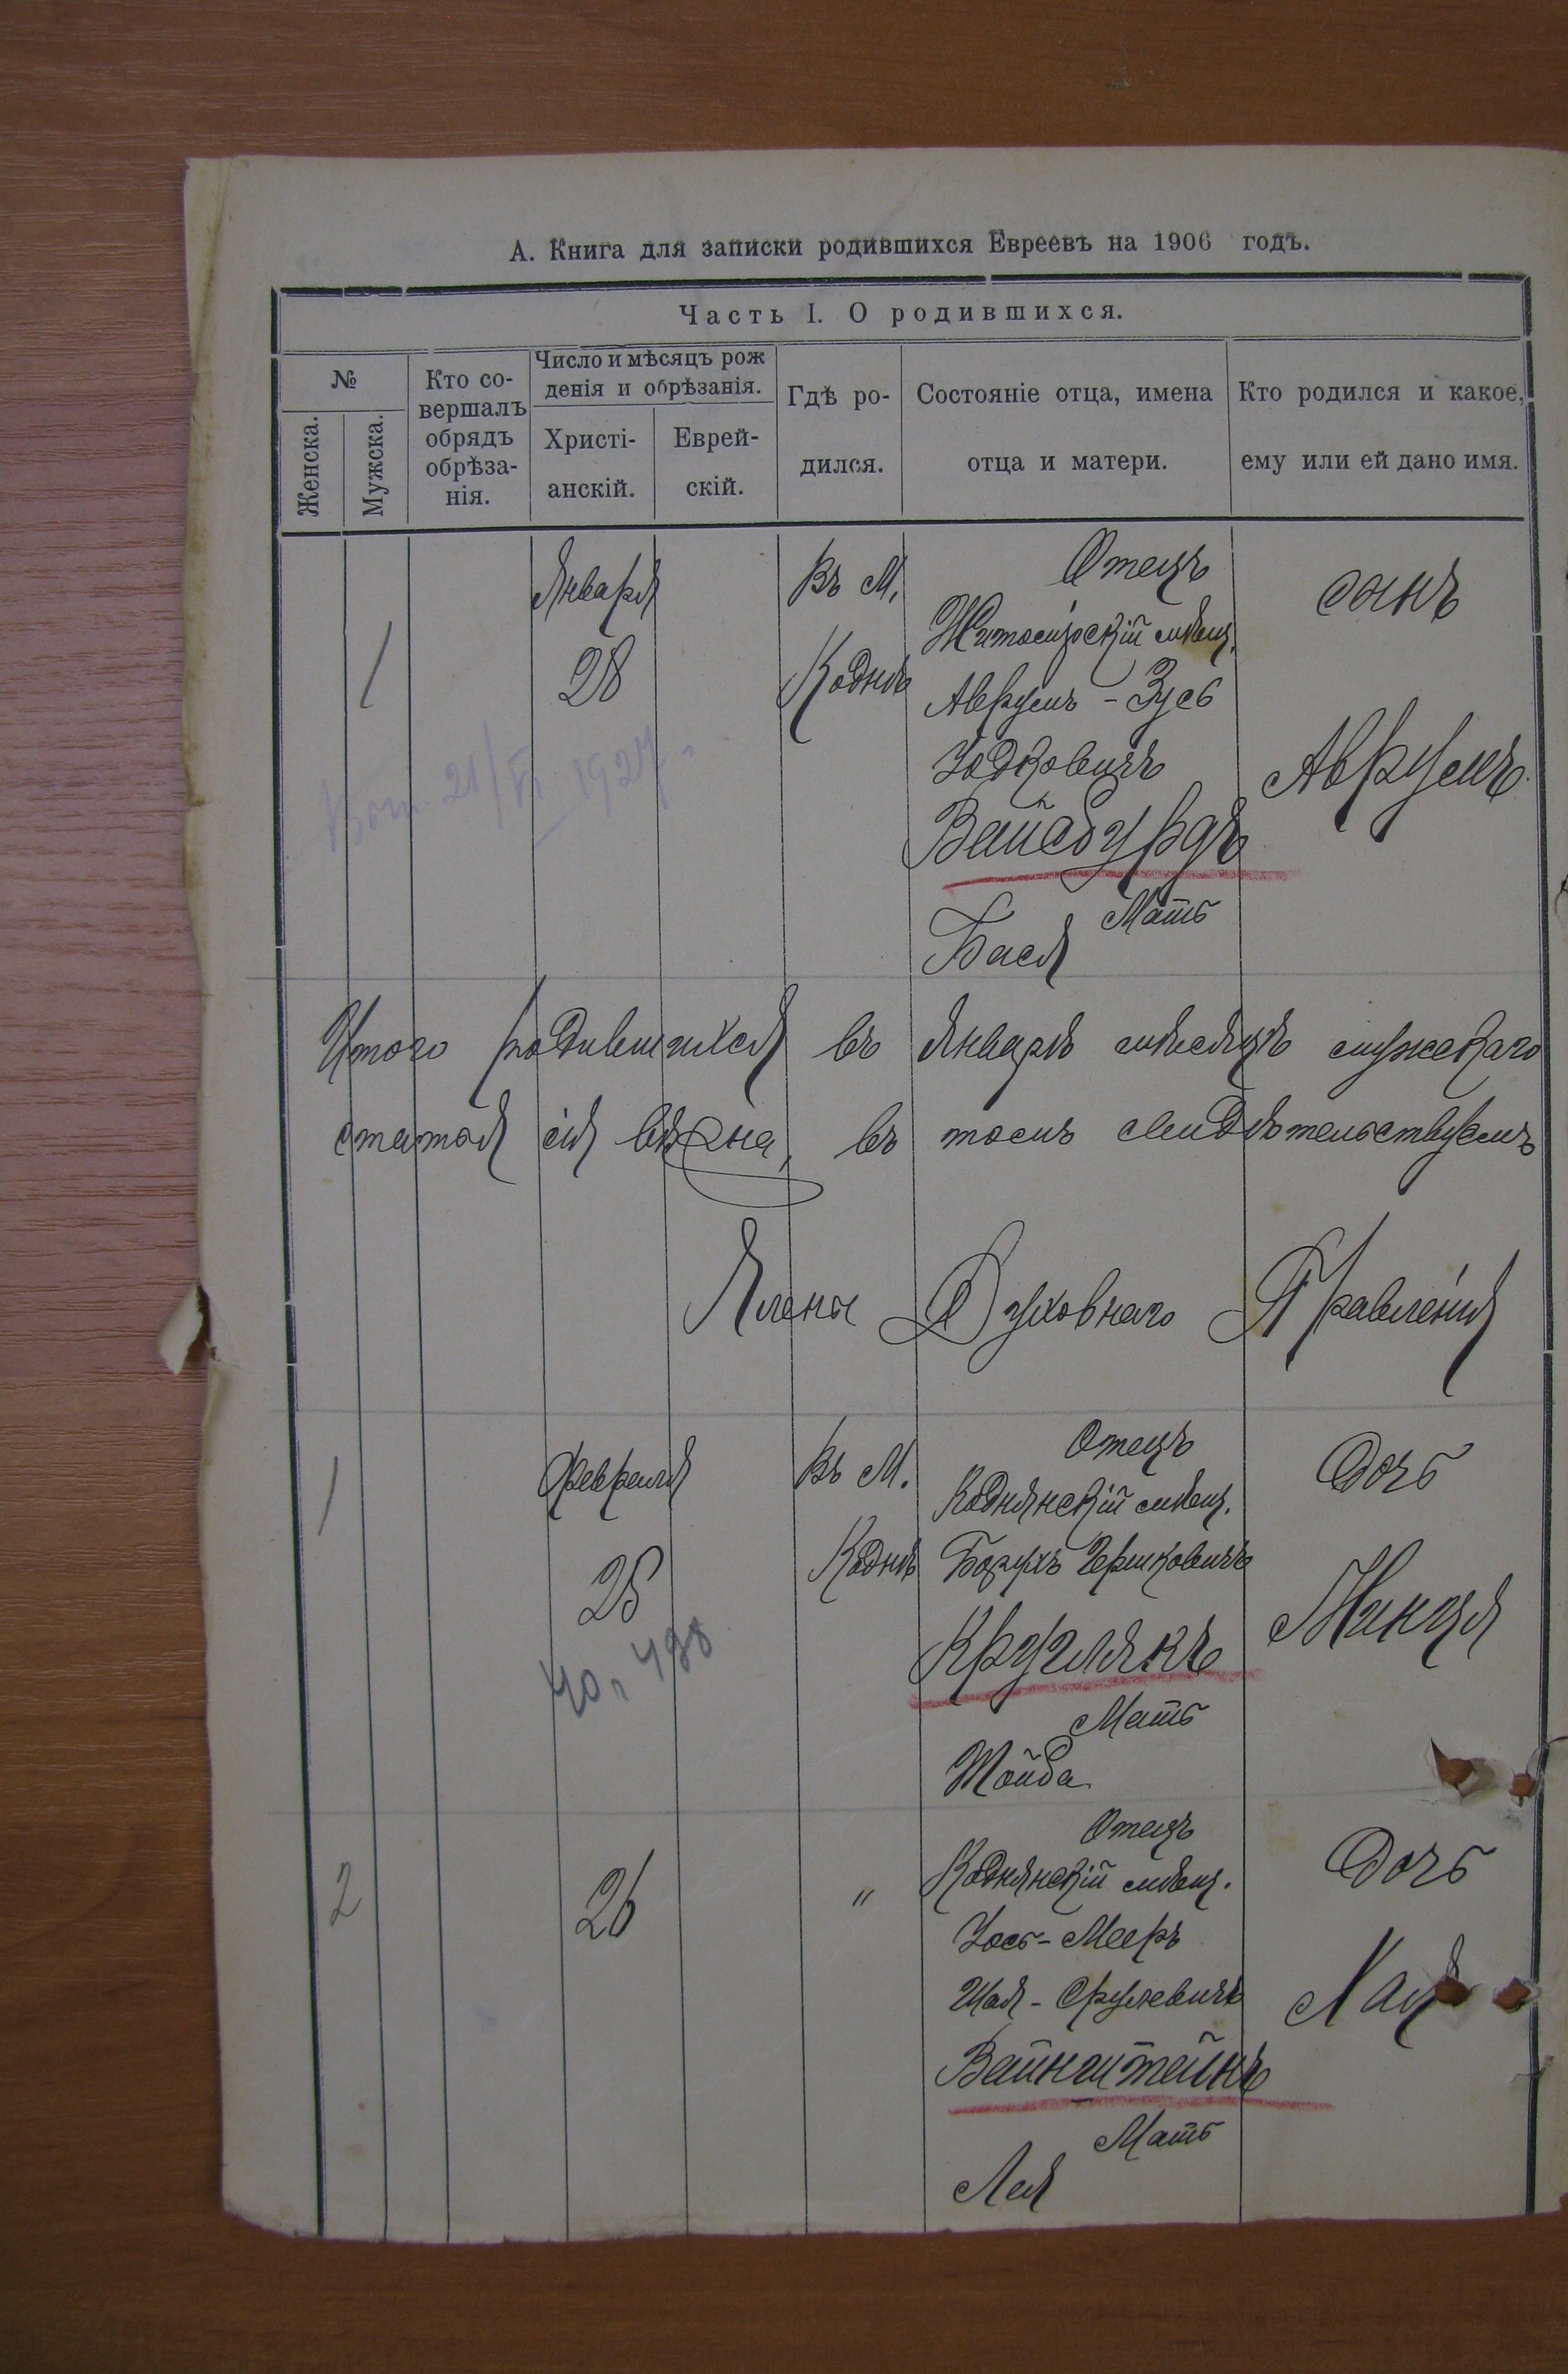 А. Книга для записки родившихся Евреевъ на 1906 годъ.
Часть I. О родившихся.
№
Женска.
Мужска.
Кто со-
вершалъ
обрядъ
обрѣза-
нія.
Число и мѣсяцъ рож
денія и обрѣзанія.
Христі-
анскій.
Еврей-
скій.
Гдѣ ро-
дился.
Состояніе отца, имена
отца и матери.
Кто родился и какое,
ему или ей дано имя.
1
Января
28
Въ М.
Коднѣ
Отецъ
Житомірскій мѣщ.
Аврумъ - Зусь
Іодковичъ
Вайсбурдъ
Мать
Бася
сынъ
Аврумъ
21/VI 1927
Итого родившихся въ Январѣ мѣсяцѣ мужскаго
статья сія вѣрна, въ томъ свидѣтельствуемъ
Члены Духовнаго Правленія
1
Февраля
25
Въ М.
Коднѣ
Отецъ
Коднянскій мѣщ.
Борухъ Гершковичъ
Круглякъ
Мать
Тойба
Дочь
Минця
2
26
"
Отецъ
Коднянскій мѣщ.
Іось - Мееръ
Шая - Срулевичъ
Вайнштейнъ
Мать
Лея
Дочь